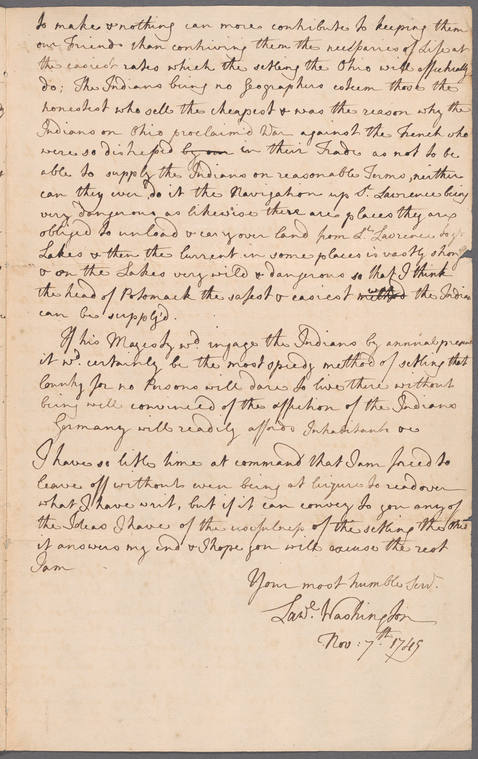 to make & nothing can more contribute to keeping them
our Friends than contriving them the necessaries of Life at
the easiest rates which the setling the Ohio will effectually
do; The Indians being no Geographers esteem those the
honestest who sell the cheapest & was the reason why the
Indians on Ohio proclaim'd War against the French who
were so distress'd in their Trade as not to be
able to supply the Indians on reasonable Terms, neither
can they ever do it the Navigation up St. Lawrence being
very dangerous as likewise there are places they are
obliged to unload & carry over land from St. Lawrence to ye
Lakes & then the Current in some places is vastly strong
& on the Lakes very wild & dangerous so that I think
the head of Potomack the safest & easiest the Indians
can be supply'd.
If his Majesty wd. ingage the Indians by annual
it wd. certainly be the most speedy method of setling that
County for no Persons will dare to live there without
being well convinced of the affection of the Indians
Germany will readily afford Inhabitants
I have so little time at command that I am forced to
leave off without even being at leizure to read over
what I have writ, but if it can convey to you any of
the Ideas I have of the usefulness of the setling the Ohio
it answers my end & I hope you will excuse the rest
I am
Your most humble Servt.
Lawe. Washington
Nov: 7th. 1749